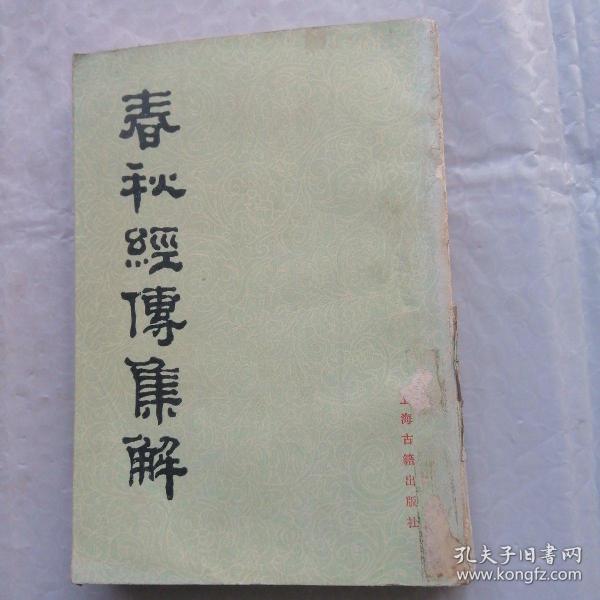 春秋經傳集解
上海古籍出版社
孔夫子旧書网
www.kongfz.com